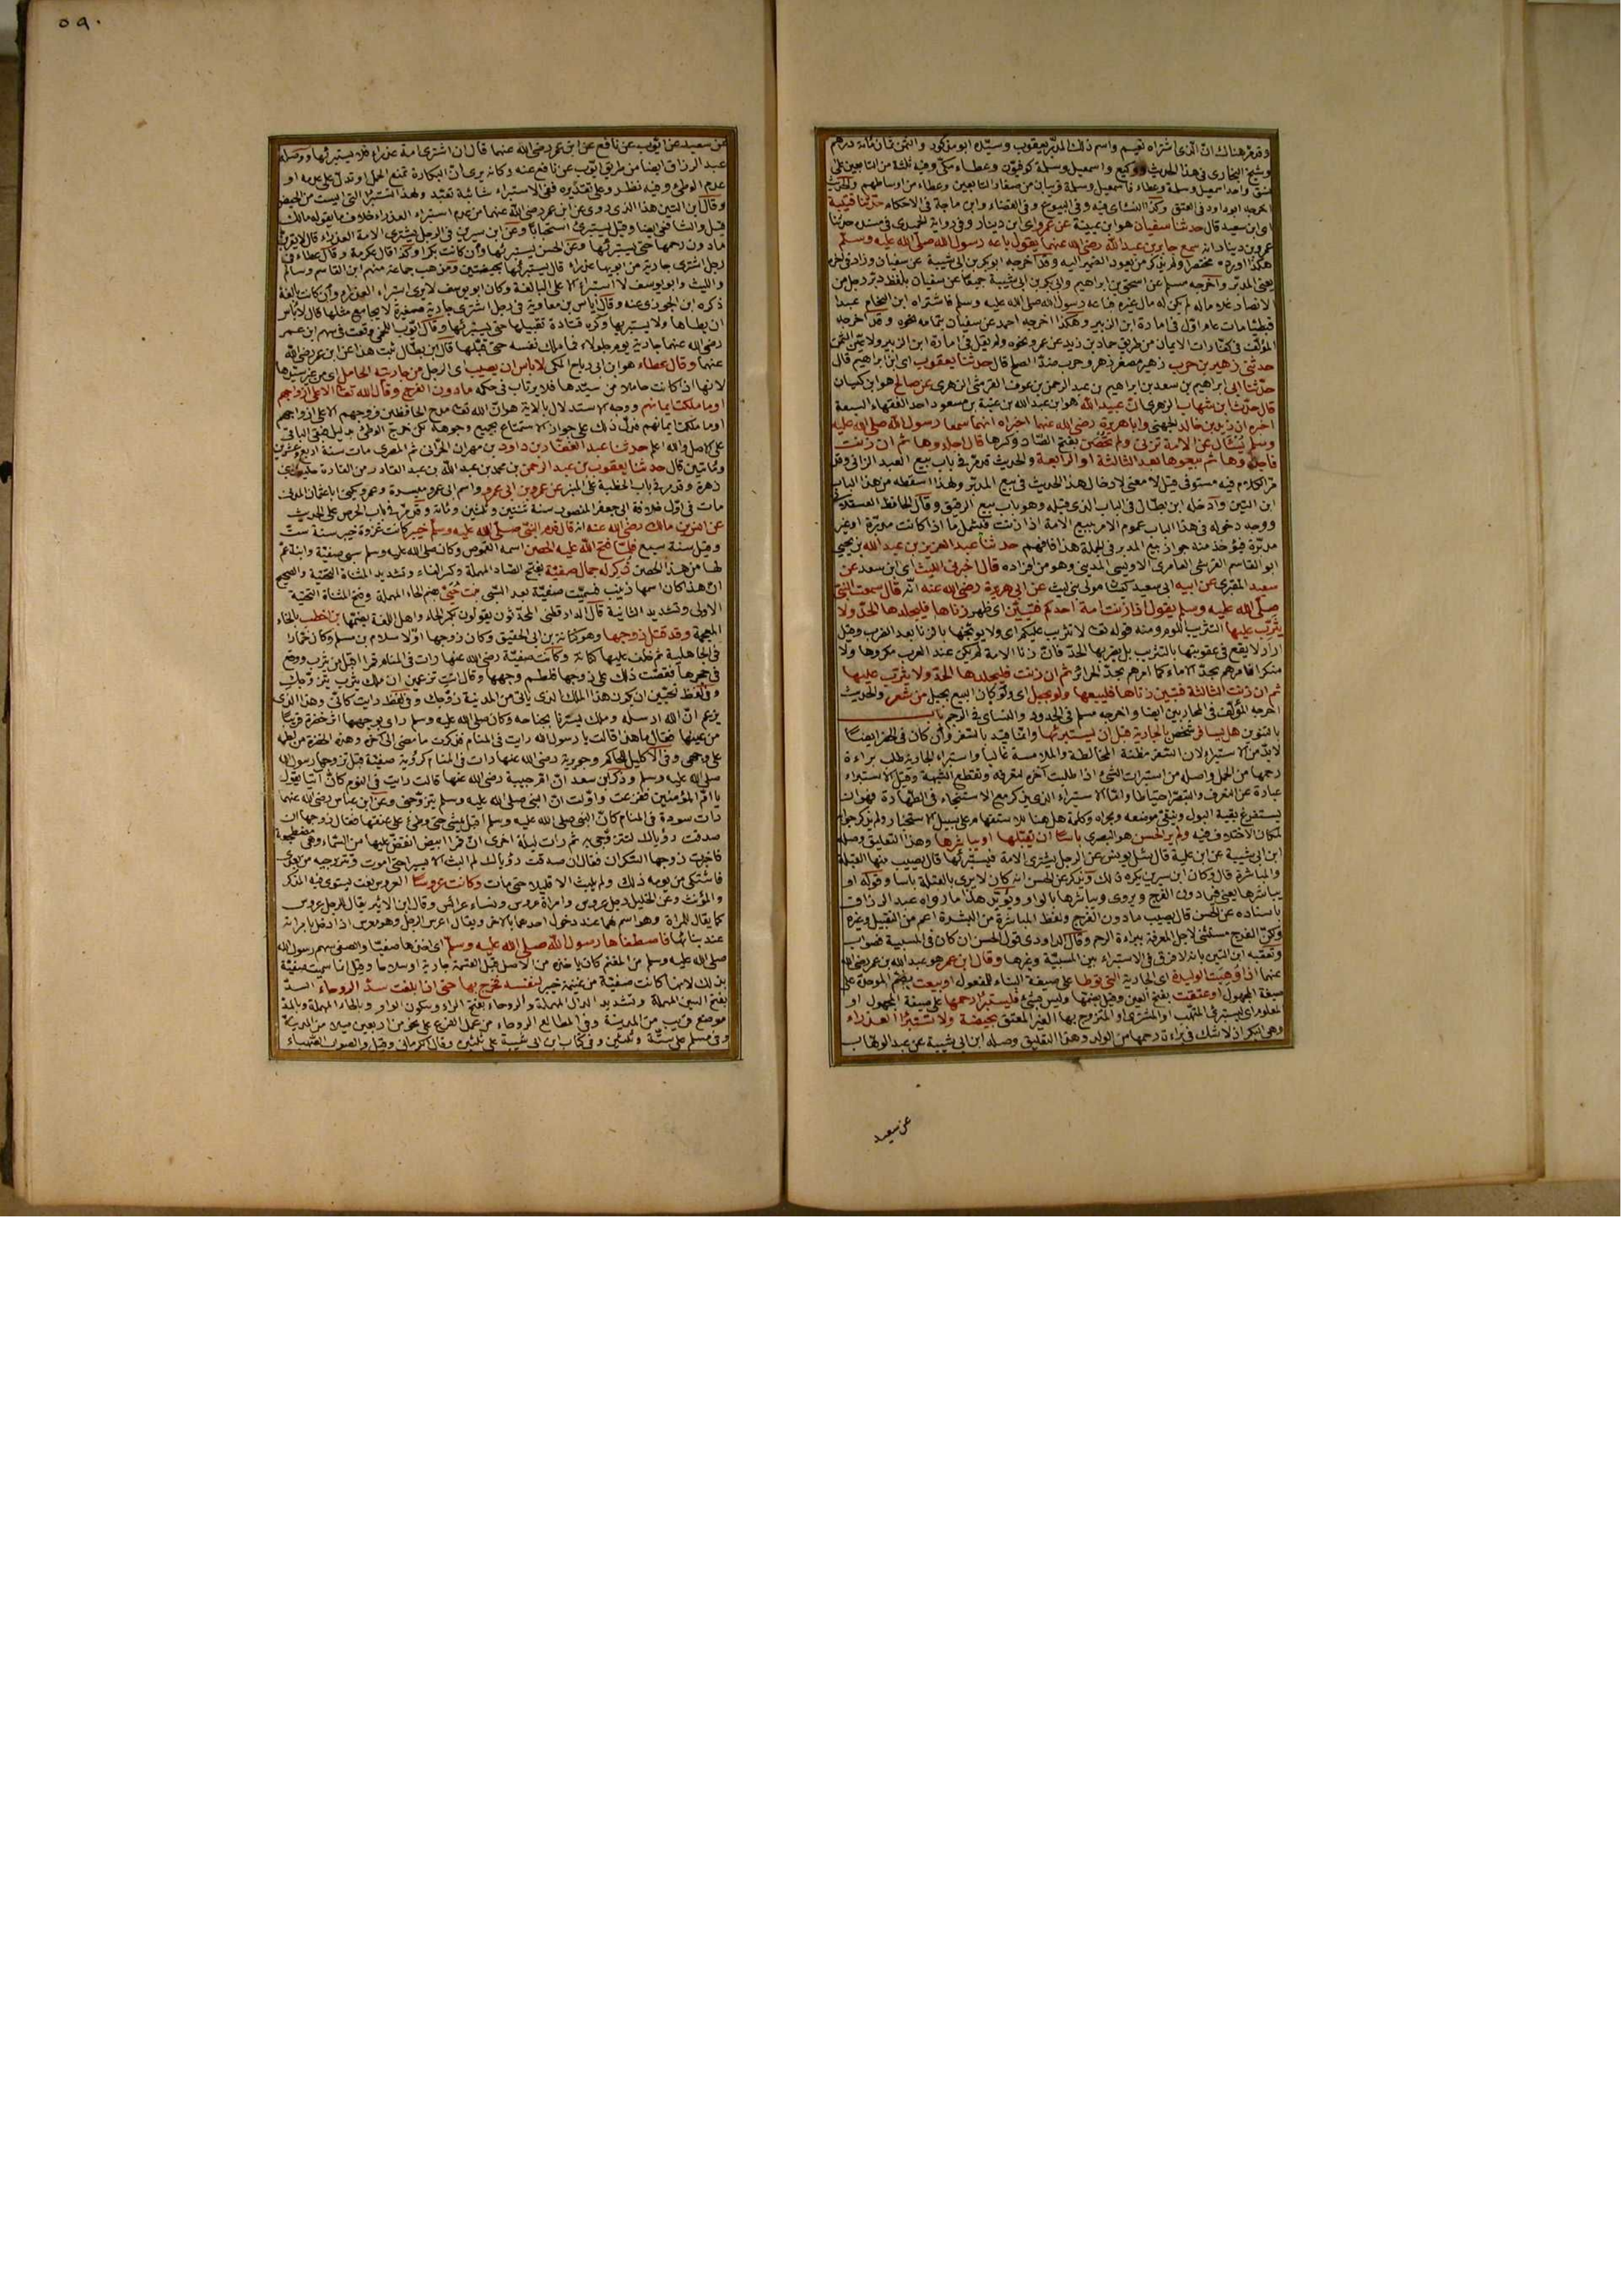 وقد مر هناك ان الذي اشتراه نعيم واسم ذلك المدبر يعقوب وسيده ابو مذكور والثمن ثمان مائة درهم
وشيخ البخاري في هذا الحديث ووكيع واسمعيل وسلمة كوفيون وعطاء مكي وفيه ثلثة من التابعين على
نسق واحد اسمعيل وسلمة وعطاء فاسمعيل وسلمة قريبان من صغار التابعين وعطاء من اوساطهم والحديث
اخرجه ابو داود في العتق وكذا النسائي فيه وفي البيوع وفي القضاء وابن ماجة في الاحكام حدثنا قتيبة
اي ابن سعيد قال حدثنا سفيان هو ابن عيينة عن عمرو اي ابن دينار وفي رواية الحميدي في مسنده حدثنا
عمرو بن دينار انه سمع جابر بن عبد الله رضي الله عنهما يقول باعه رسول الله صلى الله عليه وسلم
هكذا اورده مختصرا ولم يذكر من يعود الضمير اليه وقد اخرجه ابو بكر بن ابي شيبة عن سفيان وزاد في اخره
يعني المدبر واخرجه مسلم عن اسحق بن ابراهيم وابي بكر بن ابي شيبة جميعا عن سفيان بلفظ دبر رجل من
الانصار غلاما له لم يكن له مال غيره فباعه رسول الله صلى الله عليه وسلم فاشتراه ابن النحام عبدا
قبطيا مات عام اول في امارة ابن الزبير وهكذا اخرجه احمد عن سفيان بتمامه نحوه وقد اخرجه
المؤلف في كفارات الايمان من طريق حماد بن زيد عن عمرو نحوه ولم يقل في امارة ابن الزبير ولا عين الثمن
حدثني زهير بن حرب زهير مصغر زهر وحرب ضد الصلح قال حدثنا يعقوب اي ابن ابراهيم قال
حدثنا ابي ابراهيم بن سعد بن ابراهيم بن عبد الرحمن بن عوف القرشي الزهري عن صالح هو ابن كيسان
قال حدث ابن شهاب الزهري ان عبيد الله هو ابن عبد الله بن عتبة بن مسعود احد الفقهاء السبعة
اخبره ان زيد بن خالد الجهني وابا هريرة رضي الله عنهما اخبراه انهما سمعا رسول الله صلى الله عليه
وسلم يسأل عن الامة تزني ولم تحصن بفتح الصاد وكسرها قال اجلدوها ثم ان زنت
فاجلدوها ثم بيعوها بعد الثالثة او الرابعة والحديث قد مر في باب بيع العبد الزاني وقد
مر الكلام فيه مستوفى قيل لا معنى لادخال هذا الحديث في بيع المدبر ولهذا اسقطه من هذا الباب
ابن التين وادخله ابن بطال في الباب الذي قبله وهو باب بيع الرقيق وقال الحافظ العسقلاني
ووجه دخوله في هذا الباب عموم الامر ببيع الامة اذا زنت فيشمل ما اذا كانت مدبرة او غير
مدبرة فيؤخذ منه جواز بيع المدبر في الجملة هذا فافهم حدثنا عبد العزيز بن عبد الله بن يحيى
ابو القاسم القرشي العامري الاويسي المديني وهو من افراده قال اخبرني الليث اي ابن سعد عن
سعيد المقبري عن ابيه ابي سعيد كيسان مولى بني ليث عن ابي هريرة رضي الله عنه انه قال سمعت النبي
صلى الله عليه وسلم يقول اذا زنت امة احدكم فتبين اي ظهر زناها فليجلدها الحد ولا
يثرب عليها التثريب اللوم ومنه قوله تعالى لا تثريب عليكم اي ولا يوبخها بالزنا بعد الضرب وقيل
اراد لا يقنع في عقوبتها بالتثريب بل يضربها الحد فان زنا الامة لم يكن عند العرب مكروها ولا
منكرا فامرهم بحد الاماء كما امرهم بحد الحرائر ثم ان زنت فليجلدها الحد ولا يثرب عليها
ثم ان زنت الثالثة فتبين زناها فليبعها ولو بحبل اي ولو كان البيع بحبل من شعر والحديث
اخرجه المؤلف في المحاربين ايضا واخرجه مسلم في الحدود والنسائي في الرجم باب
بالتنوين هل يسافر شخص بالجارية قبل ان يستبرئها وانما قيد بالسفر وان كان في الحضر ايضا
لا بد من الاستبراء لان السفر مظنة المخالطة والملامسة غالبا واستبراء الجارية طلب براءة
رحمها من الحمل واصله من استبرات الشيء اذا طلبت آخره لتعرفه وتقطع الشبهة وقيل الاستبراء
عبارة عن التعرف والتبصر احتياطا واما الاستبراء الذي يذكر مع الاستنجاء في الطهارة فهو ان
يستفرغ بقية البول وينقي موضعه ومجراه وكلمة هل هنا للاستفهام على سبيل الاستخبار ولم يذكر جوابه
لمكان الاختلاف فيه ولم ير الحسن هو البصري باسا ان يقبلها او يباشرها وهذا التعليق وصله
ابن ابي شيبة عن ابن علية قال سئل يونس عن الرجل يشتري الامة فيستبرئها قال يصيب منها القبلة
والمباشرة قال وكان ابن سيرين يكره ذلك ويذكر عن الحسن انه كان لا يرى بالقبلة باسا وقوله او
يباشرها يعني فيما دون الفرج ويروى ويباشرها بالواو ويؤيد هذا ما رواه عبد الرزاق
باسناده عن الحسن قال يصيب ما دون الفرج ولفظ المباشرة من البشرة اعم من التقبيل وغيره
ولكن الفرج مستثنى لاجل المعرفة ببراءة الرحم وقال الداودي قول الحسن ان كان في المسبية فصواب
وتعقبه ابن التين بانه لا فرق في الاستبراء بين المسبية وغيرها وقال ابن عمر هو عبد الله بن عمر رضي الله
عنهما اذا وهبت الوليدة اي الجارية التي توطأ على صيغة البناء للمفعول او بيعت بكسر الموحدة على
صيغة المجهول او عتقت بفتح العين وقيل بضمها وليس بشيء فليستبرأ رحمها على صيغة المجهول او
المعلوم اي ليستبرئ المتهب او المشتري او المتزوج بها الغير المعتق بحيضة ولا تستبرأ العذراء
وهي البكر اذ لا شك في براءة رحمها من الولد وهذا التعليق وصله ابن ابي شيبة عن عبد الوهاب
عن سعيد
٥٩٠
عن سعيد عن ايوب عن نافع عن ابن عمر رضي الله عنهما قال ان اشترى امة عذراء فلا يستبرئها ووصله
عبد الرزاق ايضا من طريق ايوب عن نافع عنه وكانه يرى ان البكارة تمنع الحمل او تدل على عدمه او
عدم الوطئ وفيه نظر وعلى تقديره ففي الاستبراء شائبة تعبد ولهذا تستبرأ التي ايست من الحيض
وقال ابن التين هذا الذي روي عن ابن عمر رضي الله عنهما من عدم استبراء العذراء خلاف ما يقوله مالك
قيل والشافعي ايضا وقيل يستبرئ استحبابا وعن ابن سيرين في الرجل يشتري الامة العذراء قال لا يقربن
ما دون رحمها حتى يستبرئها وعن الحسن يستبرئها وان كانت بكرا وكذا قال عكرمة وقال عطاء في
رجل اشترى جارية من ابويها عذراء قال يستبرئها بحيضتين ومذهب جماعة منهم ابن القاسم وسالم
والليث وابو يوسف لا استبراء الا على البالغة وكان ابو يوسف لا يرى استبراء العذراء وان كانت بالغة
ذكره ابن الجوزي عنه وقال اياس بن معاوية في رجل اشترى جارية صغيرة لا يجامع مثلها قال لا باس
ان يطاها ولا يستبرئها وكره قتادة تقبيلها حتى يستبرئها وقال ايوب اللخمي وقعت في سهم ابن عمر
رضي الله عنهما جارية يوم جلولاء فما ملك نفسه حتى قبلها قال ابن بطال ثبت هذا عن ابن عمر رضي الله
عنهما وقال عطاء هو ابن ابي رباح المكي لا باس ان يصيب اي الرجل من جاريته الحامل اي من غير سيدها
لانها اذا كانت حاملا من سيدها فلا يرتاب في حكمه ما دون الفرج وقال الله تعالى الا على ازواجهم
او ما ملكت ايمانهم ووجه الاستدلال بالاية هو ان الله تعالى مدح الحافظين فروجهم الا على ازواجهم
او ما ملكت ايمانهم فدل ذلك على جواز الاستمتاع بجميع وجوهه لكن خرج الوطئ بدليل فبقي الباقي
على الاصل والله اعلم حدثنا عبد الغفار بن داود بن مهران الحراني ثم المصري مات سنة اربع وعشرين
ومائتين قال حدثنا يعقوب بن عبد الرحمن بن محمد بن عبد الله بن عبد القادر من القارة حليف بني
زهرة وقد مر في باب الخطبة على المنبر عن عمرو بن ابي عمرو واسم ابي عمرو ميسرة وعمرو يكنى ابا عثمان المدني
مات في اول خلافة ابي جعفر المنصور سنة ثنتين وثلثين ومائة وقد مر في باب الحرص على الحديث
عن انس بن مالك رضي الله عنه انه قال قدم النبي صلى الله عليه وسلم خيبر كانت غزوة خيبر سنة ست
وقيل سنة سبع فلما فتح الله عليه الحصن اسمه القموص وكان صلى الله عليه وسلم سبى صفية وابنة عم
لها من هذا الحصن ذكر له جمال صفية بفتح الصاد المهملة وكسر الفاء وتشديد المثناة التحتية والصحيح
ان هذا كان اسمها زينب فسميت صفية بعد السبي بنت حيي بضم الحاء المهملة وفتح المثناة التحتية
الاولى وتشديد الثانية قال الدارقطني المحدثون يقولون بكسر الحاء واهل اللغة بضمها بن اخطب بالخاء
المعجمة وقد قتل زوجها وهو كنانة بن ابي الحقيق وكان زوجها اولا سلام بن مشكم وكان خمارا
في الجاهلية ثم خلف عليها كنانة وكانت صفية رضي الله عنها رات في المنام قمرا اقبل من يثرب ووقع
في حجرها فقصت ذلك على زوجها فلطم وجهها وقال انت تزعمين ان ملك يثرب يتزوجك
وفي لفظ تحبين ان يكون هذا الملك الذي ياتي من المدينة زوجك وفي لفظ رايت كاني وهذا الذي
يزعم ان الله ارسله وملك يسترنا بجناحه وكان صلى الله عليه وسلم راى بوجهها اثر خضرة قريبا
من عينها فقال ما هذا قالت يا رسول الله رايت في المنام فذكرت ما مضى الى آخره وهذه الخضرة من لطمه
على وجهي وفي الاكليل للحاكم وجويرية رضي الله عنها رات في المنام كرؤية صفية قبل تزوجها رسول الله
صلى الله عليه وسلم وذكر ابن سعد ان ام حبيبة رضي الله عنها قالت رايت في النوم كان آتيا يقول
يا ام المؤمنين ففزعت واولت ان النبي صلى الله عليه وسلم يتزوجني وعن ابن عباس رضي الله عنهما
رات سودة في المنام كان النبي صلى الله عليه وسلم اقبل يمشي حتى وطئ على عنقها فقال زوجها ان
صدقت رؤياك لتتزوجي به ثم رات ليلة اخرى ان قمرا ابيض انقض عليها من السماء وهي مضطجعة
فاخبرت زوجها السكران فقال ان صدقت رؤياك لم البث الا يسيرا حتى اموت وتتزوجيه من بعدي
فاشتكى من يومه ذلك ولم يلبث الا قليلا حتى مات وكانت عروسا العروس نعت يستوي فيه المذكر
والمؤنث وعن الخليل رجل عروس وامراة عروس ونساء عرائس وقال ابن الاثير يقال للرجل عروس
كما يقال للمراة وهو اسم لهما عند دخول احدهما بالاخر ويقال اعرس الرجل وهو معرس اذا دخل بامراته
عند بنائها فاصطفاها رسول الله صلى الله عليه وسلم اي اخذها صفيا والصفي سهم رسول الله
صلى الله عليه وسلم من المغنم كان ياخذه من الاصل قبل القسمة جارية او سلاحا وقيل انما سميت صفية
بذلك لانها كانت صفية من غنيمة خيبر لنفسه فخرج بها حتى اذا بلغت سد الروحاء السد
بفتح السين المهملة وتشديد الدال المهملة والروحاء بفتح الراء وسكون الواو وبالحاء المهملة وبالمد
موضع قريب من المدينة وفي المطالع الروحاء من عمل الفرع على نحو من اربعين ميلا من المدينة
وفي مسلم على ستة وثلثين وفي كتاب ابن ابي شيبة على ثلثين وقال الكرماني وقيل والصواب الصهباء